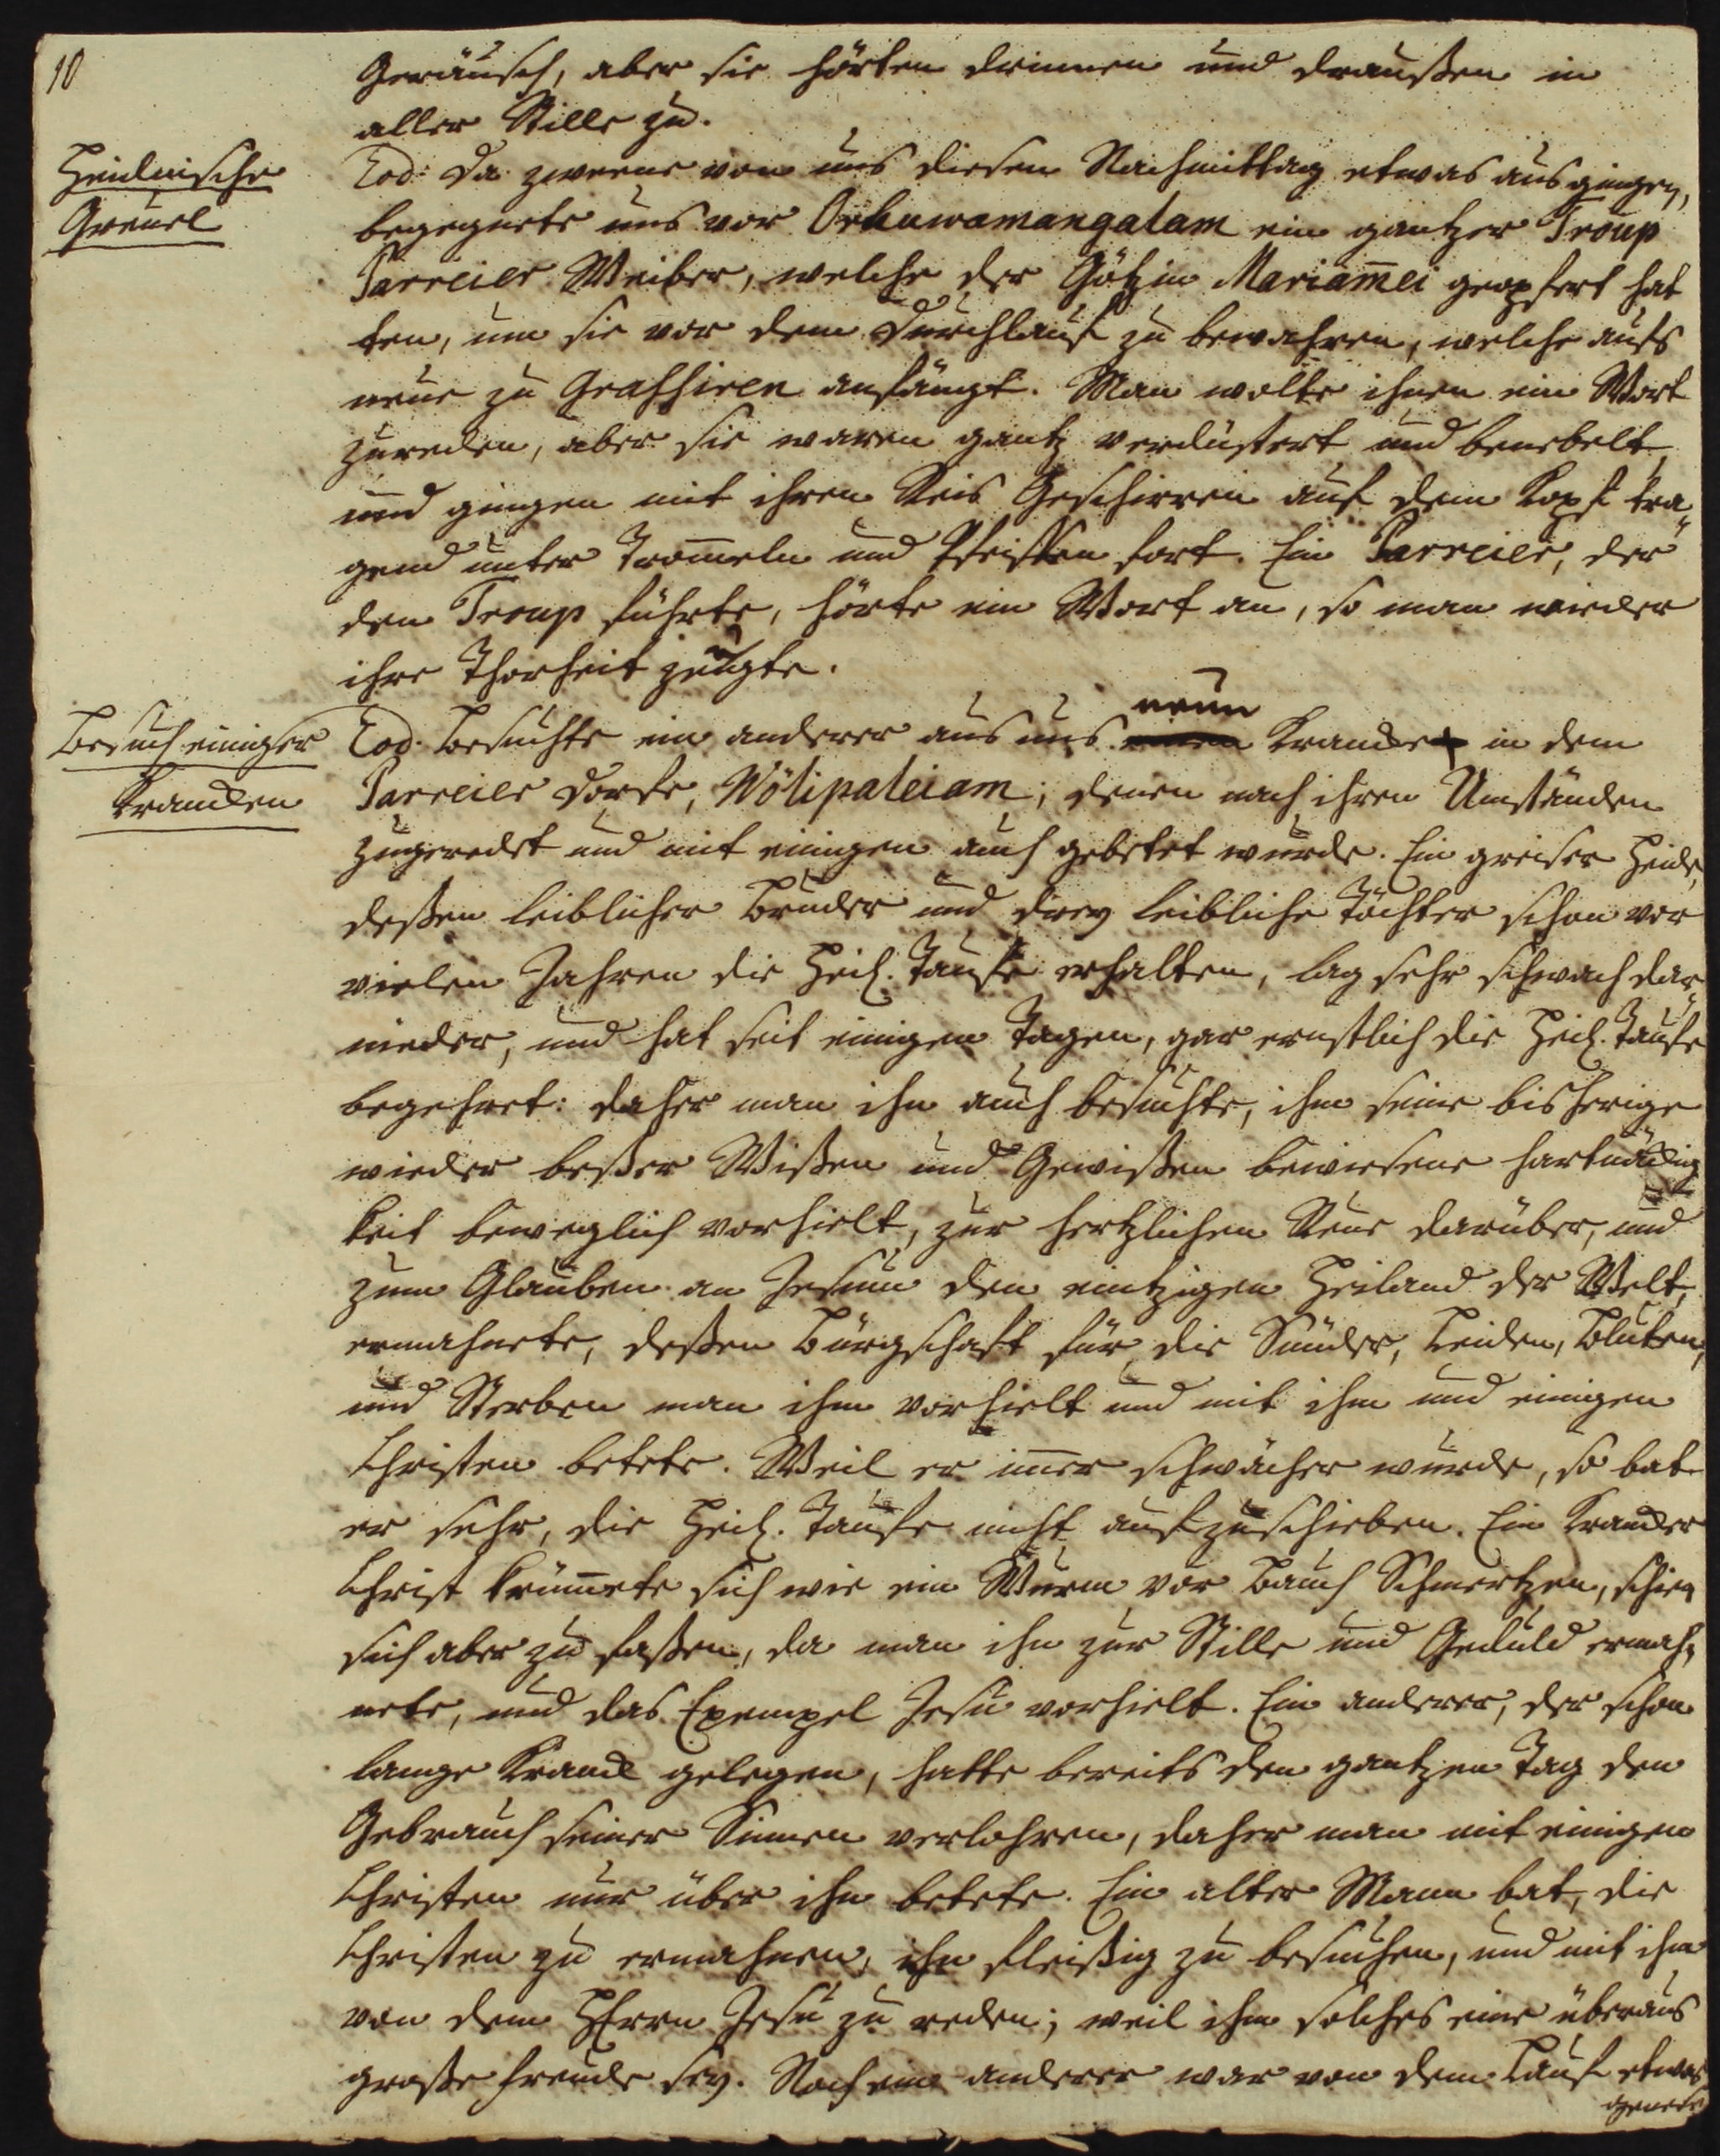 10
Geräusch, aber sie hörten drinnen und draußen in
aller Stille zu.
Heidnische
Greuel
Eod: Da zweene von uns diesen Nachmittag etwas ausgingen,
begegnete uns vor Orhuwamangalam ein gantzer Troup
Parreier Weiber, welche der Götzin Mariam̄ei geopfert hat
ten, um sie vor dem Durchlauf zu bewahren, welche aufs
neue zu Grassiren anfängt. Man wolte ihnen ein Wort
zureden, aber sie waren gantz verdüstert und benebelt
und gingen mit ihren Reis Geschirren auf dem Kopf tra„
gend unter Trom̄eln und Pfeiffen fort. Ein Parreier, der
den Troup führte, hörte ein Wort an, so man wieder
ihre Thorheit zeugte.
Besuch einiger
Krancken
Eod. Besuchte ein anderer aus uns neun Krancke in dem
Parreier Dorfe, Wölipaleiam; denen nach ihren Umständen
zugeredet und mit einigen auch gebetet wurde. Ein greiser Heide,
deßen leiblicher Bruder und drey leibliche Töchter schon vor
vielen Jahren die Heil. Taufe erhalten, lag sehr schwach dar„
nieder, und hat seit einigen Tagen, gar ernstlich die Heil. Taufe
begehret: daher man ihn auch besuchte, ihm seine bisherige
wieder beßer Wißen und Gewißen bewiesene hartnäckig
keit beweglich vorhielt, zur hertzlichen Reue darüber, und
zum Glauben an Jesum den eintzigen Heiland der Welt,
ermahnete, deßen Bürgschaft für die Sünder, Leiden, Bluten,
und Sterben man ihm vorhielt und mit ihm und einigen
Christen betete. Weil er im̄er schwächer wurde, so bat
er sehr, die Heil. Taufe nicht aufzuschieben. Ein Krancker
Christ krüm̄ete sich wie ein Wurm vor Bauch Schmertzen, schien
sich aber zu faßen, da man ihn zur Stille und Geduld ermah„
nete, und das Exempel Jesu vorhielt. Ein anderer, der schon
lange Kranck gelegen, hatte bereits den gantzen Tag den
Gebrauch seiner Sinnen verlohren, daher man mit einigen
Christen nur über ihn betete. Ein alter Mann bat, die
Christen zu ermahnen, ihn fleißig zu besuchen, und mit ihm
von dem HErrn Jesu zu reden; weil ihm solches eine überaus
große Freude sey. Noch ein anderer war von dem Lauf etwas